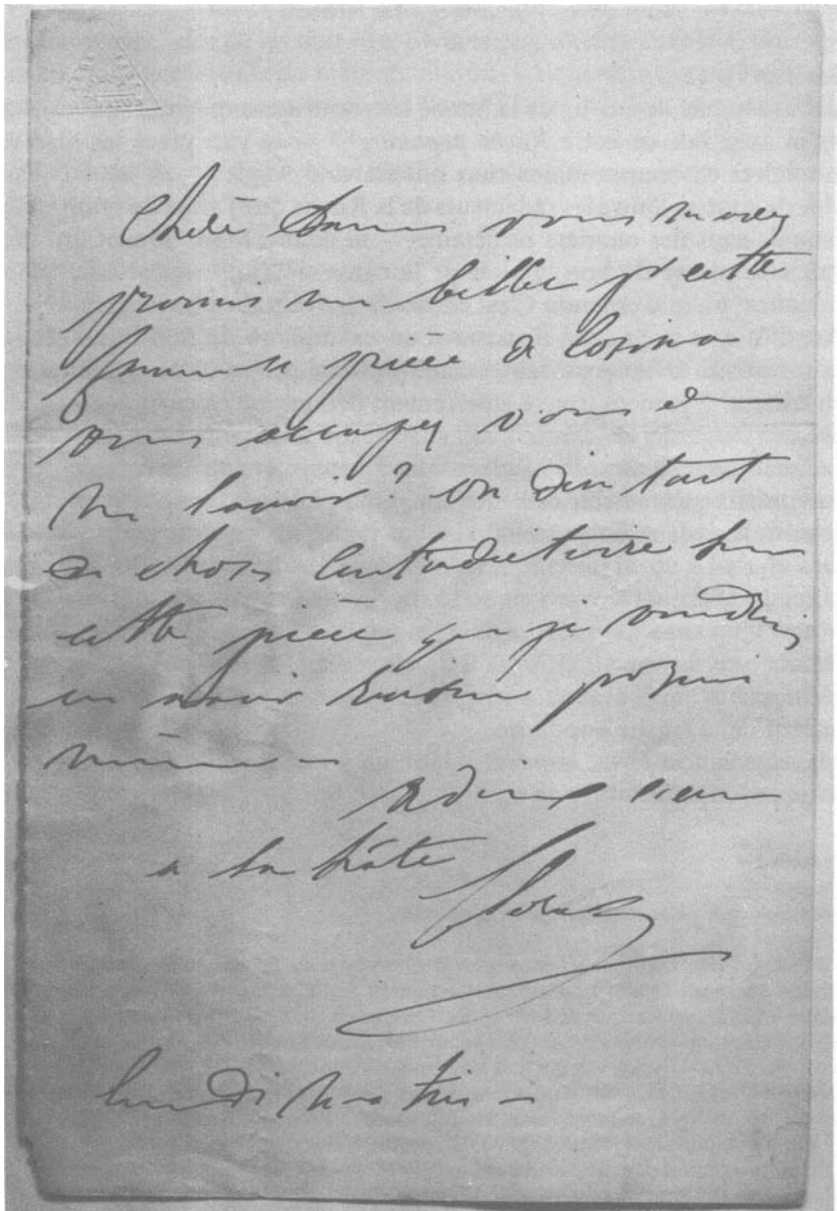 Chère Dame vous m'avez
promis un billet pr cette
fameuse piece de Cosima
vous occupez vous de
me l'avoir? on dit tant
de choses contradictoires sur
cette piece que je voudrais
en avoir raison par moi
même –
adieu
a la hâte
Flora
lundi matin –